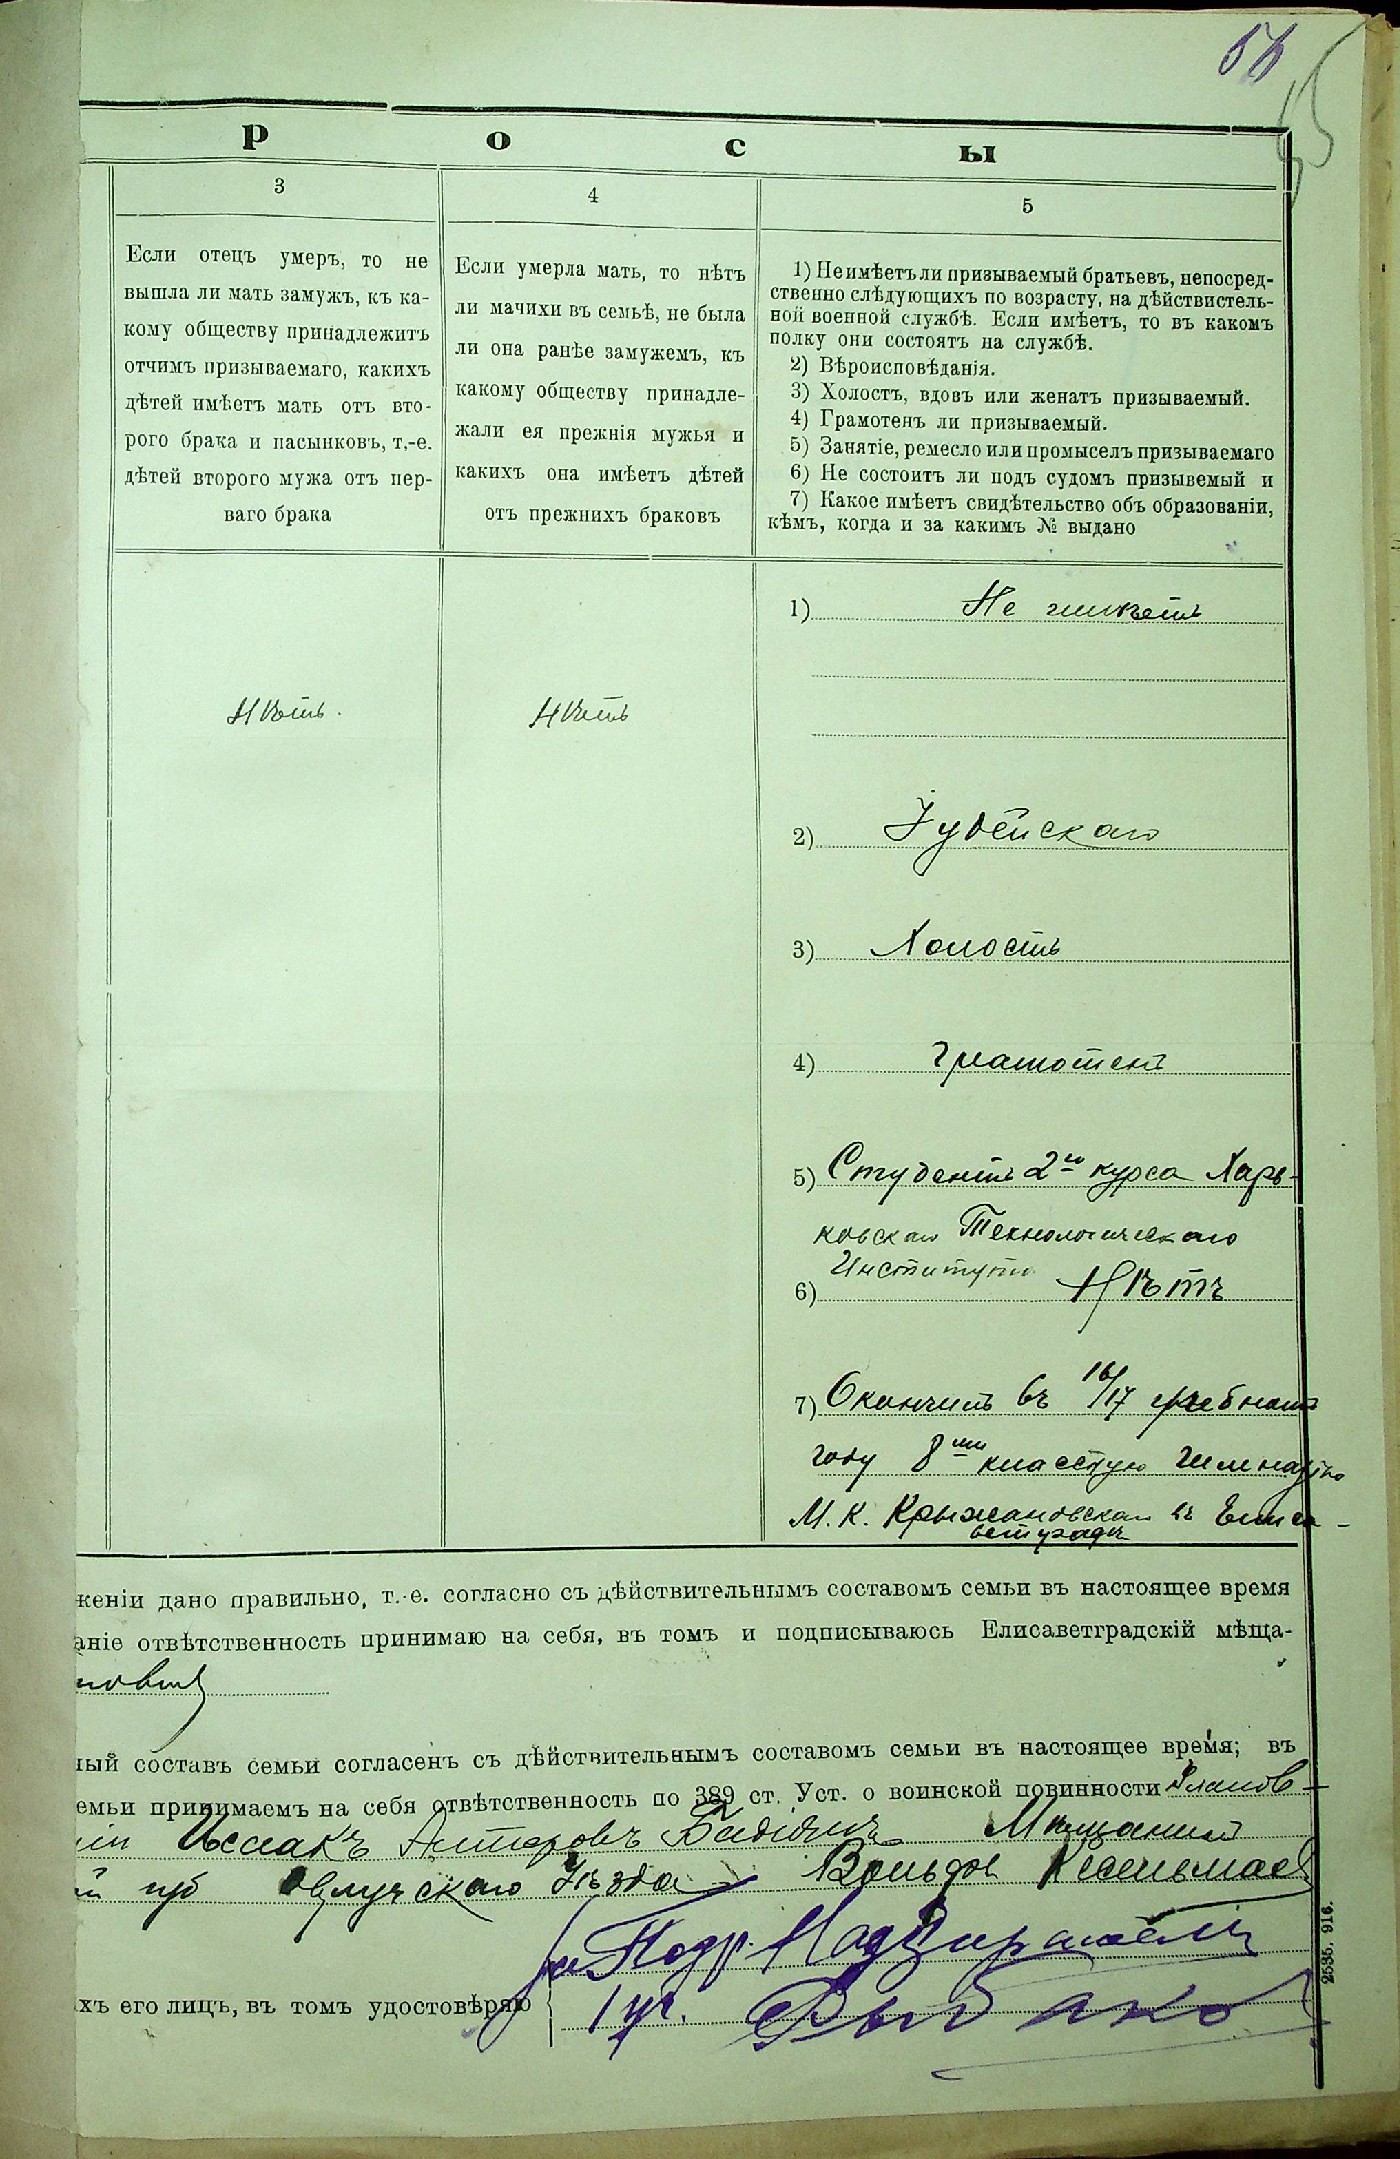 56
55
Р О С Ы
3
Если отецъ умеръ, то не
вышла ли мать замужъ, къ ка-
кому обществу принадлежитъ
отчимъ призываемаго, какихъ
дѣтей имѣетъ мать отъ вто-
рого брака и пасынковъ, т.-е.
дѣтей второго мужа отъ пер-
ваго брака
Нѣтъ.
4
Если умерла мать, то нѣтъ
ли мачихи въ семьѣ, не была
ли она ранѣе замужемъ, къ
какому обществу принадле-
жали ея прежнія мужья и
какихъ она имѣетъ дѣтей
отъ прежнихъ браковъ
Нѣтъ
5
1) Не имѣетъ ли призываемый братьевъ, непосред-
ственно слѣдующихъ по возрасту, на дѣйствистель-
ной военной службѣ. Если имѣетъ, то въ какомъ
полку они состоятъ на службѣ.
2) Вѣроисповѣданія.
3) Холостъ, вдовъ или женатъ призываемый.
4) Грамотенъ ли призываемый.
5) Занятіе, ремесло или промыселъ призываемаго
6) Не состоитъ ли подъ судомъ призывемый и
7) Какое имѣетъ свидѣтельство объ образованіи,
кѣмъ, когда и за какимъ № выдано
1) Не имѣетъ
2) Іудейскаго
3) Холостъ
4) Грамотенъ
5) Студентъ 2го курса Харь-
ковскаго Технологическаго
Института
6) Нѣтъ
7) Окончилъ въ 16/17 учебномъ
году 8ми классную гимназію
М. К. Крыжановской въ Елиса-
ветградѣ
женіи дано правильно, т.-е. согласно съ дѣйствительнымъ составомъ семьи въ настоящее время
аніе отвѣтственность принимаю на себя, въ томъ и подписываюсь Елисаветградскій мѣща-
ный составъ семьи согласенъ съ дѣйствительнымъ составомъ семьи въ настоящее время; въ
емьи принимаемъ на себя отвѣтственность по 389 ст. Уст. о воинской повинности
Исаакъ Мѣщанинъ
губ Овручскаго Уѣзда Вольфъ
За Подр. Надзирателя
хъ его лицъ, въ томъ удостовѣряю 1 уч. Рыбако
2535. 916.